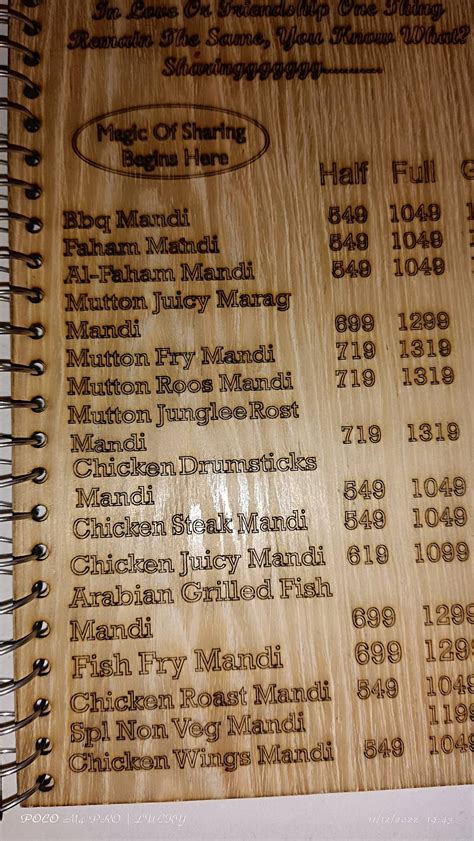 In Love Or Friendship One Thing
Remain The Same, You Know What?
Sharinggggggg..........
Magic Of Sharing
Begins Here
Half Full G
Bbq Mandi 549 1049 1
Faham Mandi 549 1049 1
Al-Faham Mandi 549 1049
Mutton Juicy Marag
Mandi 699 1299
Mutton Fry Mandi 719 1319
Mutton Roos Mandi 719 1319
Mutton Junglee Rost
Mandi 719 1319
Chicken Drumsticks
Mandi 549 1049
Chicken Steak Mandi 549 1049
Chicken Juicy Mandi 619 1099
Arabian Grilled Fish
Mandi 699 1299
Fish Fry Mandi 699 129
Chicken Roast Mandi 549 104
Spl Non Veg Mandi 119
Chicken Wings Mandi 549 104
POCO M4 PRO | LUCKY 11/12/2022 19:43